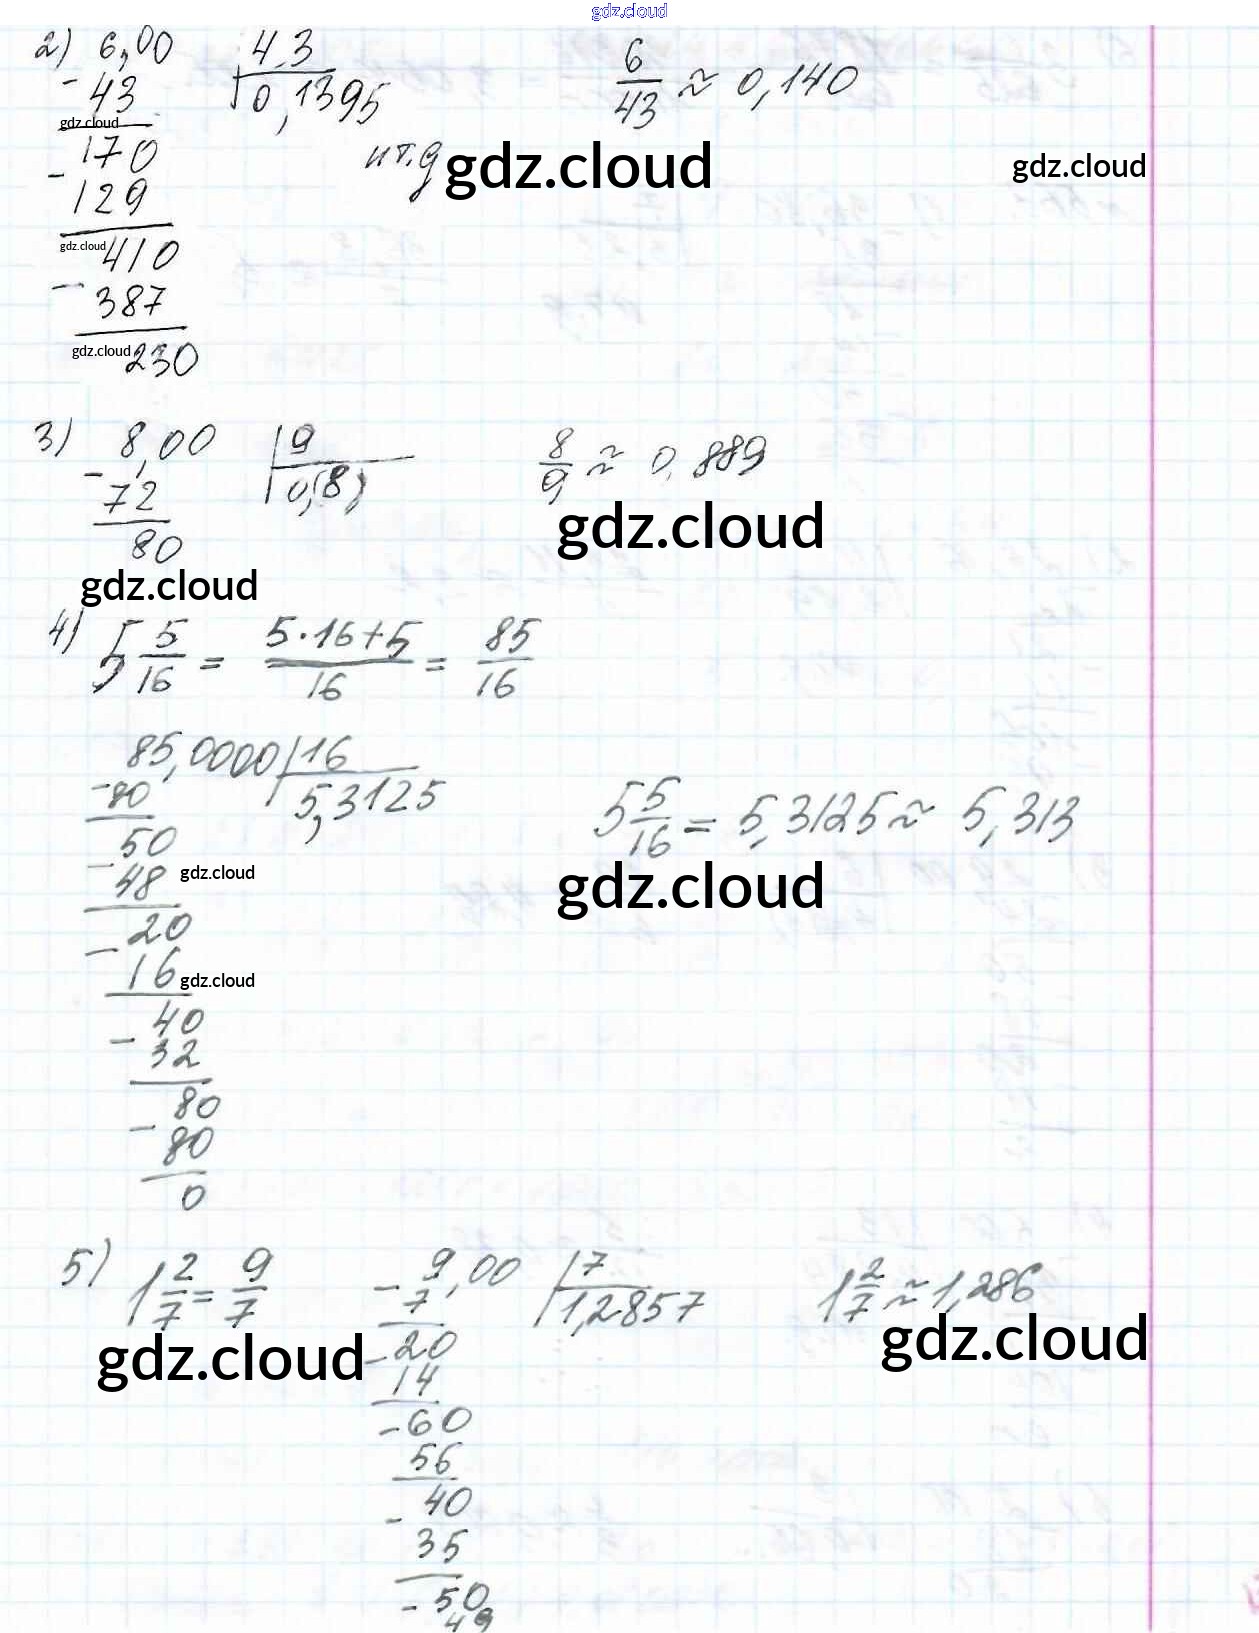 gdz.cloud
2) 6,00 | 43
- 43 0,1395
gdz.cloud
170
- 129
gdz.cloud
410
- 387
gdz.cloud
230
и т.д
6/43 ≈ 0,140
gdz.cloud
gdz.cloud
3) 8,00 | 9
- 72 0,(8)
80
8/9 ≈ 0,889
gdz.cloud
gdz.cloud
4) 5 5/16 = 5·16+5/16 = 85/16
85,0000 | 16
- 80 5,3125
50
- 48
gdz.cloud
20
- 16
gdz.cloud
40
- 32
80
- 80
0
5 5/16 = 5,3125 ≈ 5,313
gdz.cloud
5) 1 2/7 = 9/7
gdz.cloud
9,00 | 7
- 7 1,2857
20
- 14
60
- 56
40
- 35
50
- 49
1 2/7 ≈ 1,286
gdz.cloud